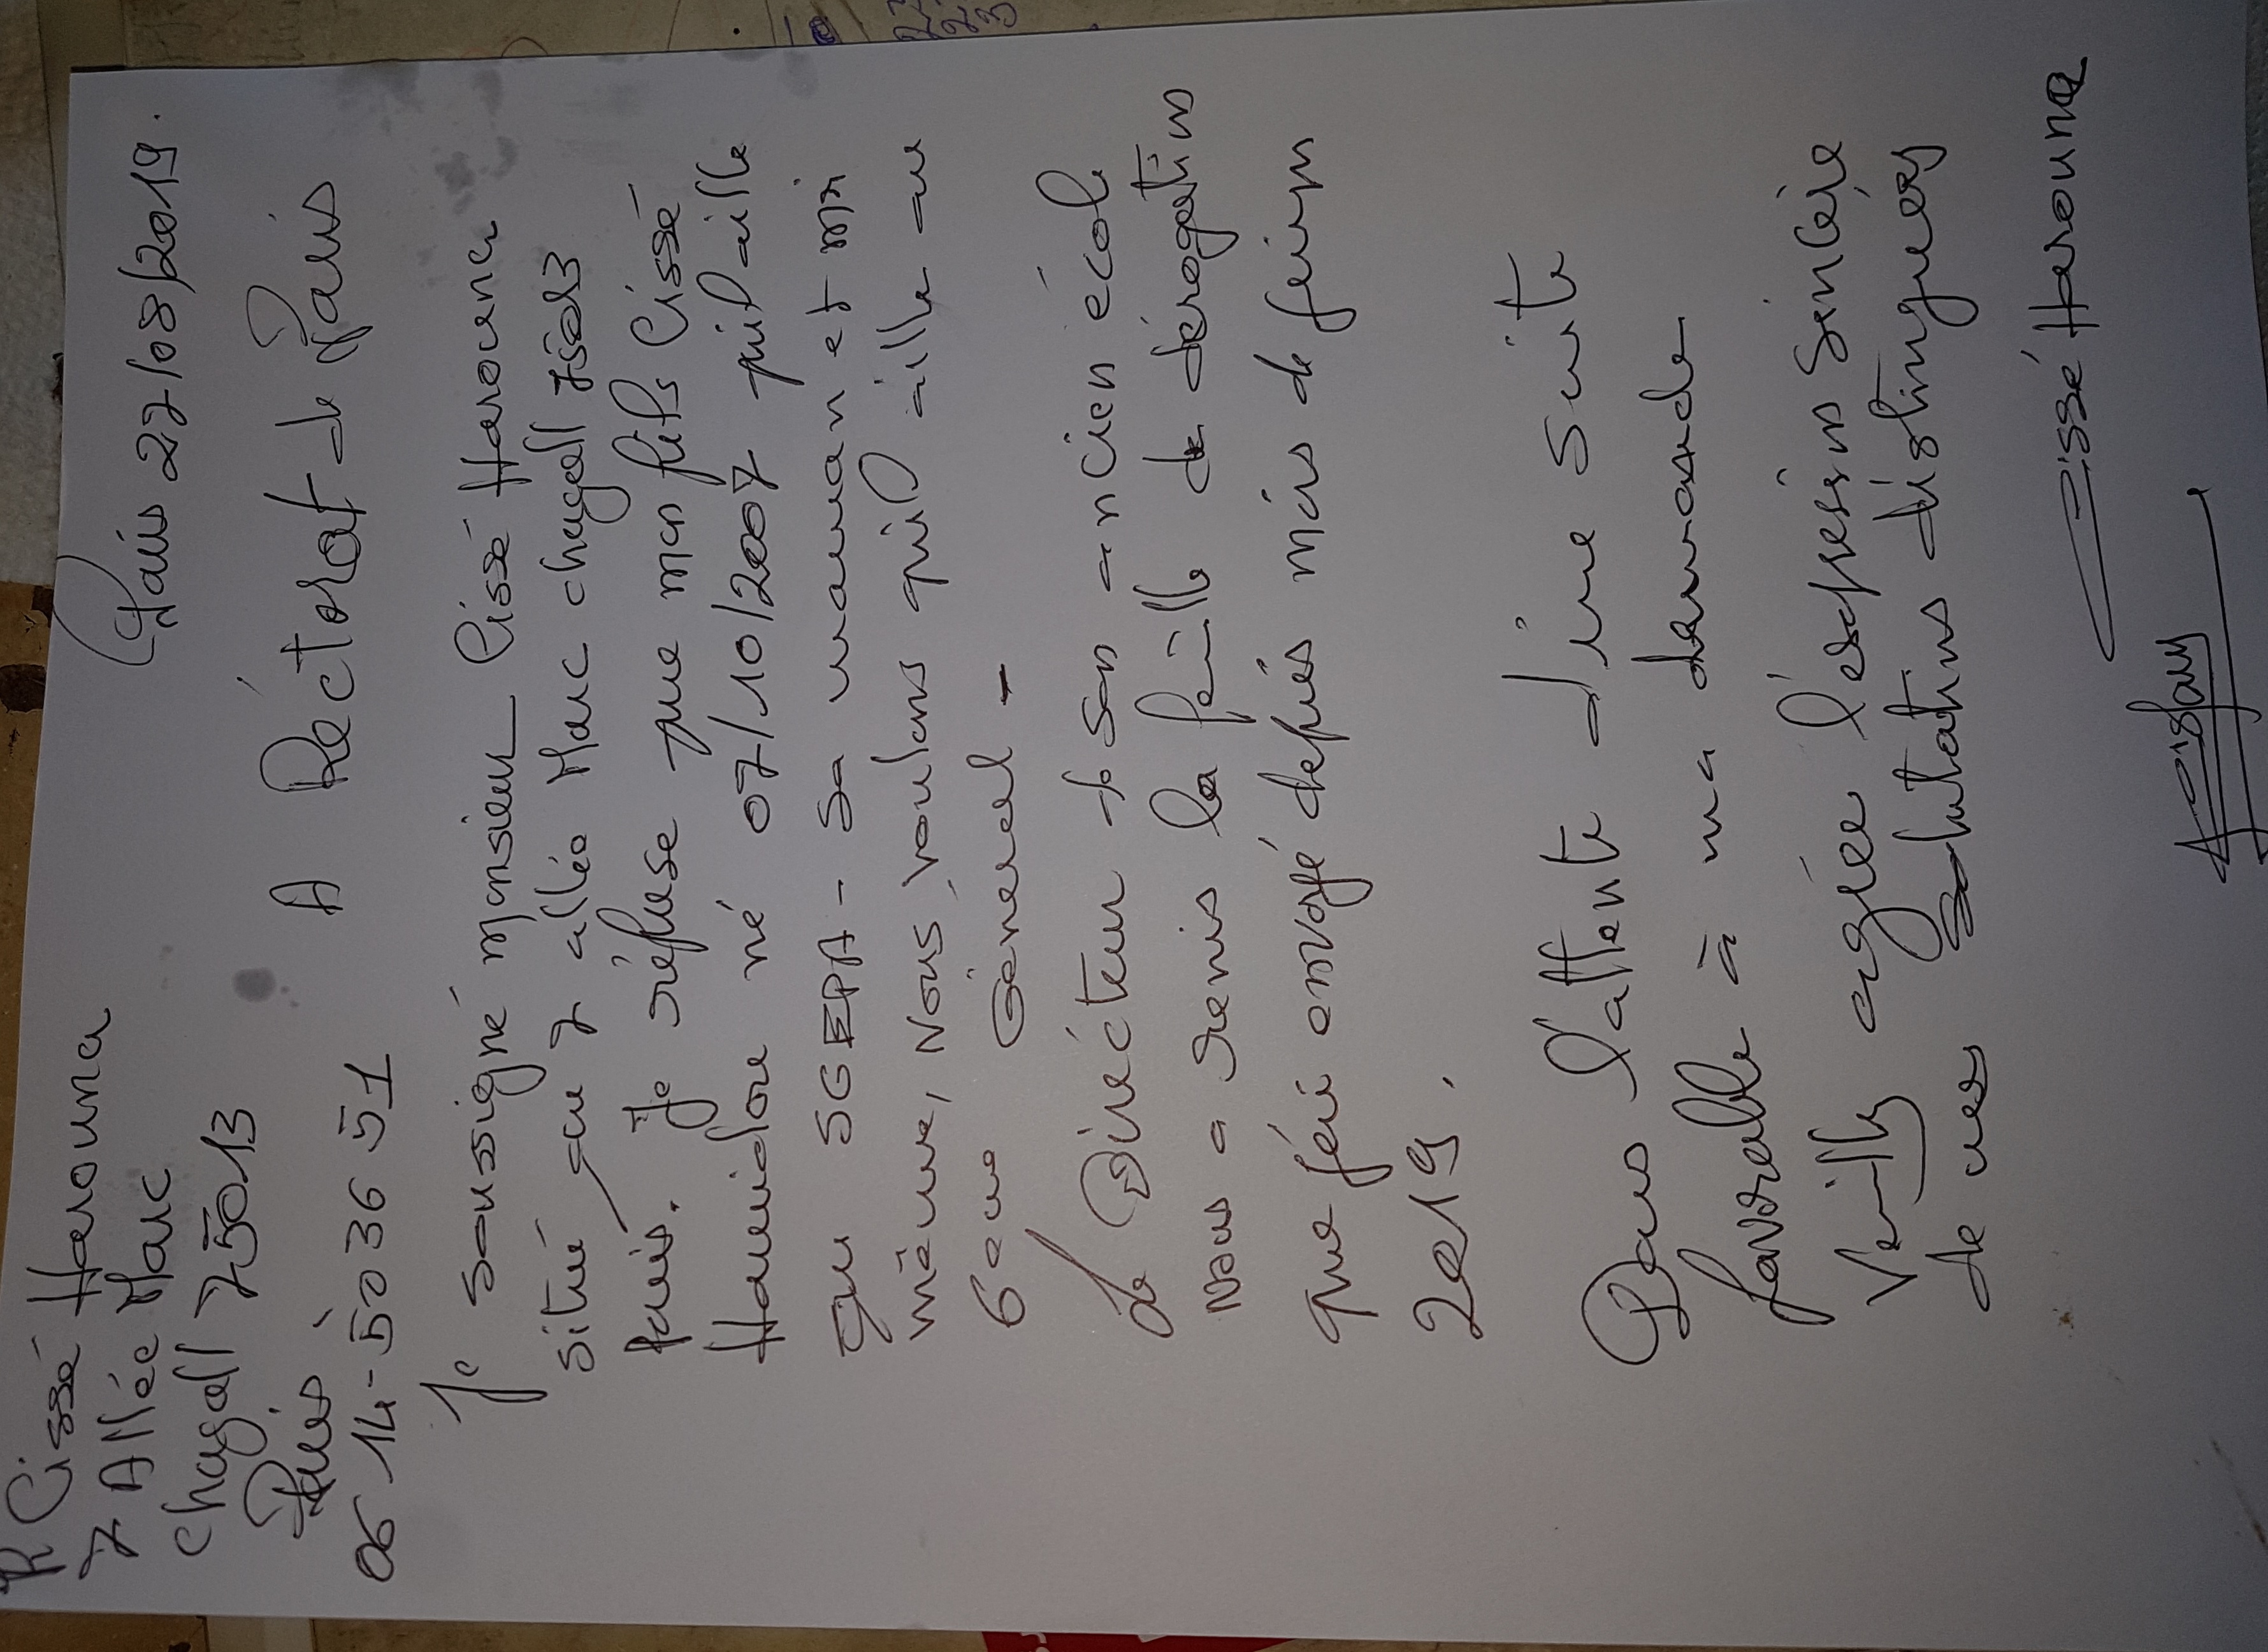 R Cissé Harouna
7 Allée Marc
chagall 75013
Paris
06 14-50 36 51
Paris 27/08/2019.
A Réctorat de Paris
Je sousigné monsieur Cissé Harouna
situé au 7 allée Marc chagall 75013
Paris. Je réfuse que mon fils Cissé
Hamidou né 07/10/2007 qu'il aille
au SGEPA - sa maman et moi
même, Nous voulons qu'il aille au
6eme Géneral -
le Dirécteur de son ancien école
Nous a remis la feuille de dérogations
que j'ai envoyé depuis mois de juin
2019.
Dans l'attente d'une suite
favorable à ma demande
Veuilly agrée l'expession sincère
de mes salutations distinguées
Cissé Harouna